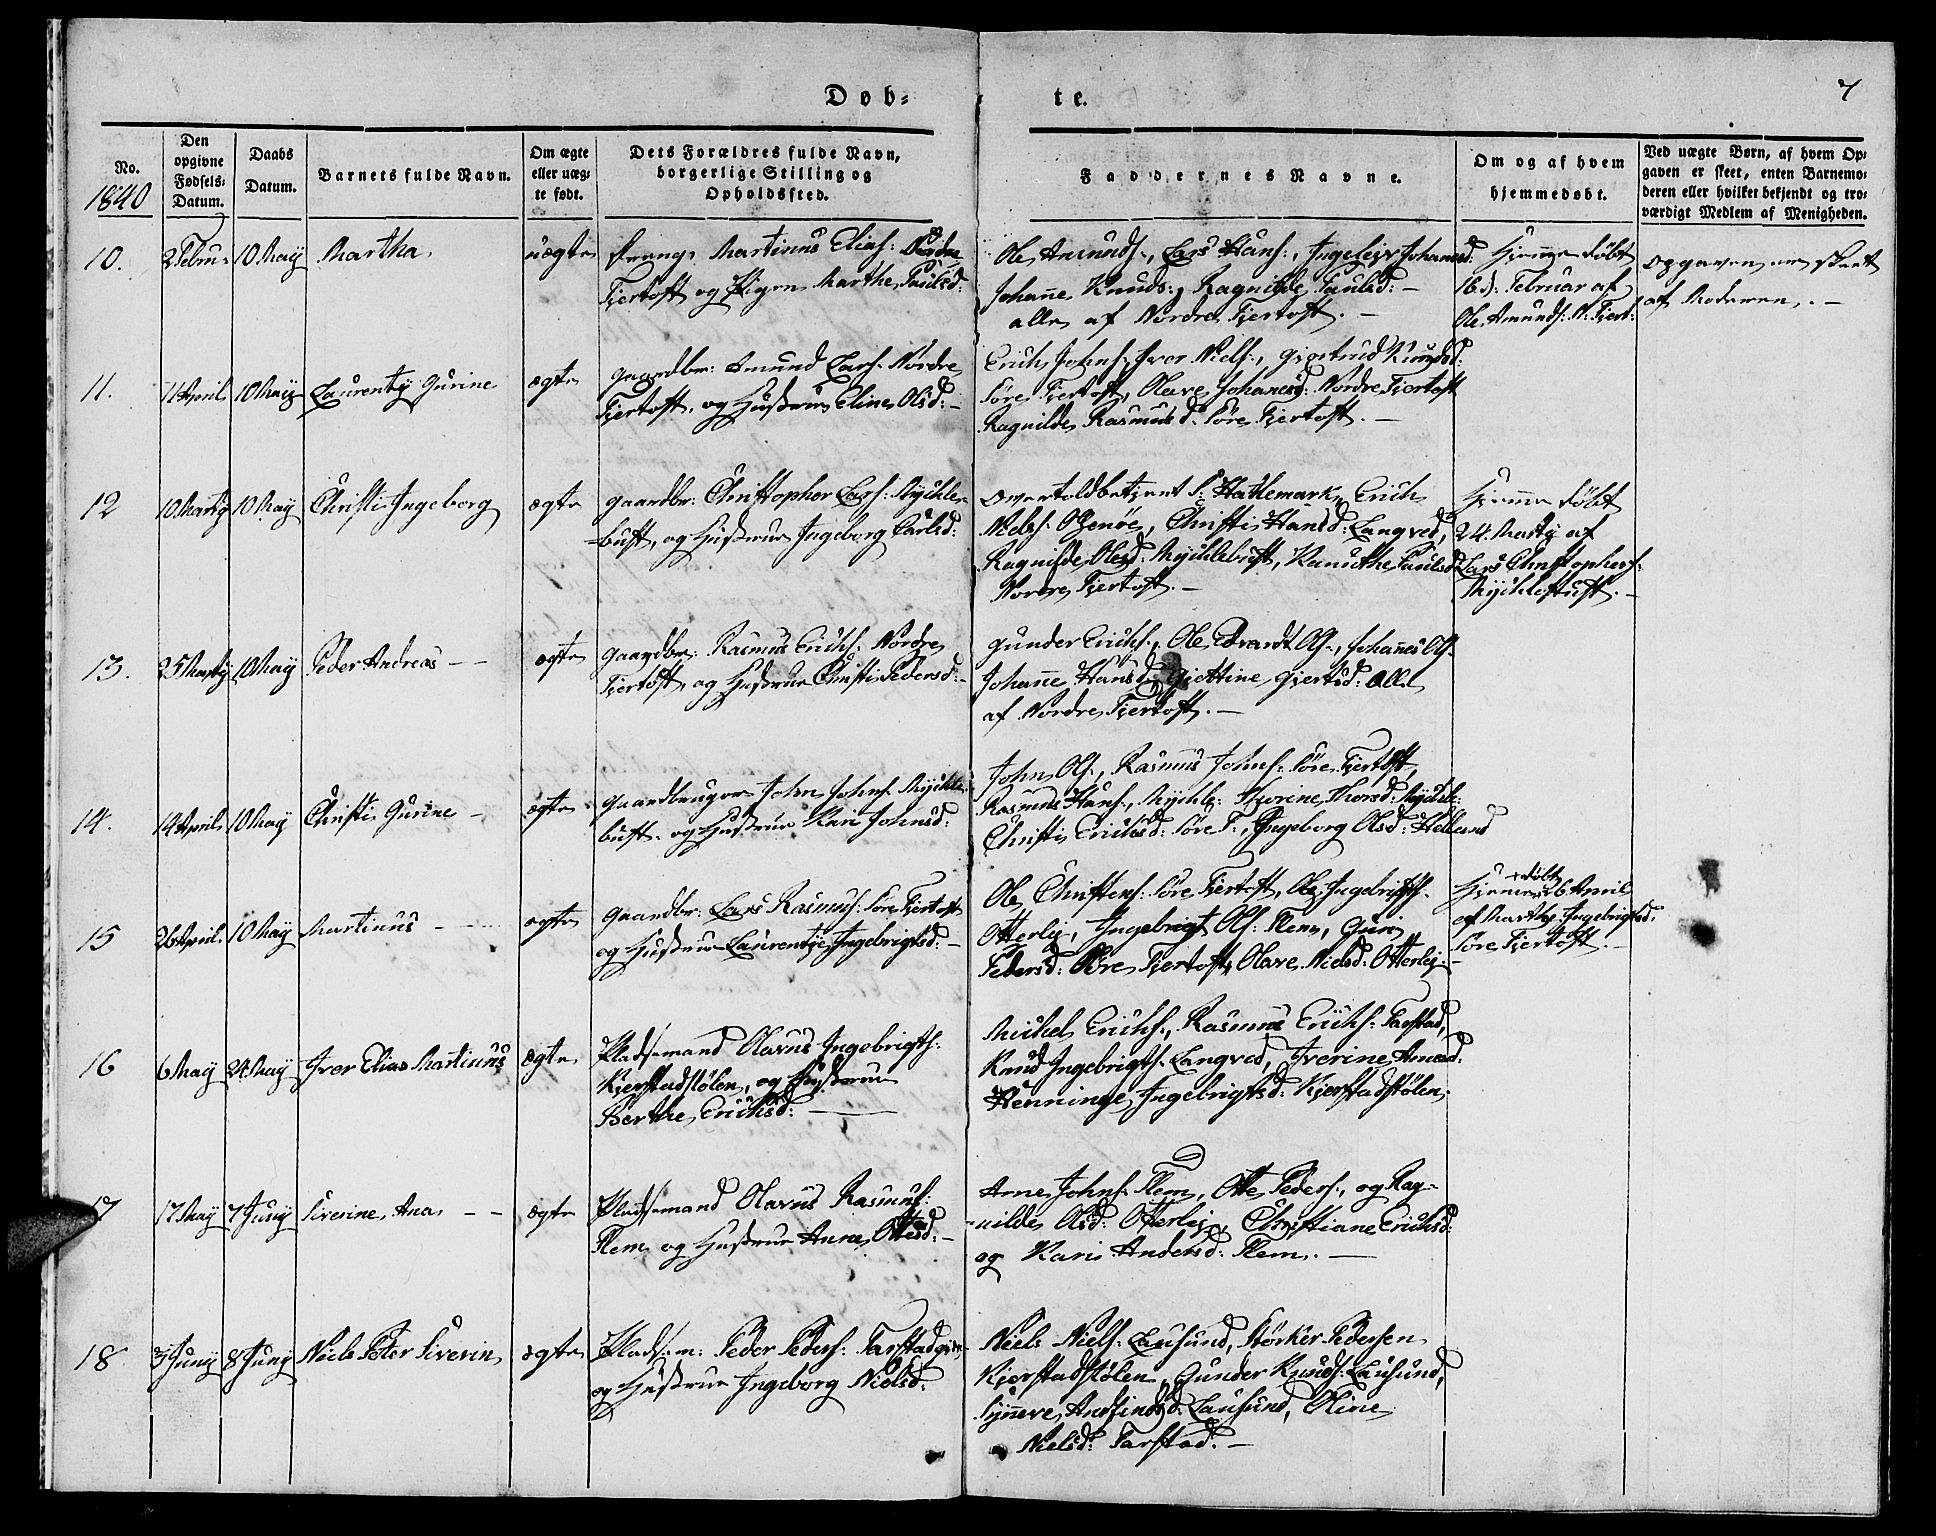 Døb-
te.
7
No.
1840
Den
opgivne
Fødsels-
Datum.
Daabs
Datum.
Barnets fulde Navn.
Om ægte
eller uæg-
te født.
Dets Forældres fulde Navn,
borgerlige Stilling og
Opholdssted.
Faddernes Navne.
Om og af hvem
hjemmedøbt.
Ved uægte Børn, af hvem Op-
gaven er skeet, enten Barnemo-
deren eller hvilket bekjendt og tro-
værdigt Medlem af Menigheden.
10. 2 Febru- 10 May Martha uægte Martinus Elias: Nordre
Fjertoft og Pigen Marthe Paulsd:
Ole Amunds., Lars Hans:, Ingeleiv Johannesd:
Johanne Knuds:, Ragnilde Paulsd: -
alle af Nordre Fjertoft. -
Hjemme døbt
16 d. Februar af
Ole Amunds: N: Fjert:
Opgaven er skeet
af Moderen. -
11. 11 April 10 May Laurenty Gurine ægte gaardbr: Amund Lars. Nordre
Fjertoft, og Hustrue Eline Olsd: -
Erich Johns:, Iver Niels:, Gjertrud Knudsd:
Søre Fjertoft, Olave Johanesd: Nordre Fjertoft
Ragnilde Rasmusd: Søre Fjertoft. -
12 10 Marty 10 May Christi Ingeborg ægte gaardbr: Christopher Lars: Mychle-
bust, og Hustrue Ingeborg Carlsd:
Overtoldbetjent S: Hathemark, Erich
Niels: Christi Hansd: Langved,
Ragnilde Olsd: Mychlebust, Kanuthe Paulsd
Nordre Fjertoft. -
Hjemme døbt
24. Marty af
Lars Christophers:
13. 25 Marty 10 May Peder Andreas - - ægte gaardbr: Rasmus Erichs: Nordre
Fjertoft, og Hustrue Christi Pedersd: -
Gunder Erichs:, Ole Edvardt Ols:, Johannes Ols:
Johanne Hansd: Gjettine Gjertsd: alle
af Nordre Fjertoft. -
14. 14 April 10 May Christi Gurine - ægte gaardbruger John Johns: Mychle-
bust. og Hustrue Kari Johnsd:
John Ols:, Rasmus Johns: Søre Fjertoft,
Rasmus Hans:, Mychle: Thorsd: Mychle:
Christi Erichsd: Søre F:, Ingeborg Olsd: Helland
15 26 April 10 May Martinus - ægte gaardbr: Lars Rasmus: Søre Fjertoft
og Hustrue Laurentze Ingebrigtsd: -
Ole Christens: Søre Fjertoft, Ole Ingebrigts:
Otterlei, Ingebrigt Ols: Flem, Guri
Pedersd: Søre Fjertoft, Olave Nielsd: Otterlei: -
Hjemme døbt 26 April
af Marthe Ingebrigtsd:
Søre Fjertoft. -
16 6 May 24 May Iver Elias Martinus ægte Pladsemand Olavus Ingebrigts:
Kjerstadstølen, og Hustrue
Berthe Erichsd: -
Michel Erichs:, Rasmus Erichs: Farstad,
Knud Ingebrigts: Langved, Iverine Amud:
Henninge Ingebrigtsd: Kjerstadstølen
17 17 May 7 Juny Siverine Ana - - ægte Pladsemand Olavus Rasmus:
Flem og Hustrue Anne Ottesd: -
Arne Johns: Flem, Otte Peders:, og Rag-
nilde Olsd: Otterlei, Christiane Erichsd:
og Kari Andersd: Flem. -
18 3 Juny 8 Juny Niels Peter Siverin ægte Pladsem: Peder Peders:
og Hustrue Ingeborg Nielsd:
Niels Niels: Lausund, Størker Pedersen
Kjerstadstølen, Gunder Knuds: Lausund,
Synneve Lausund, Oline
Nielsd: Farstad. -